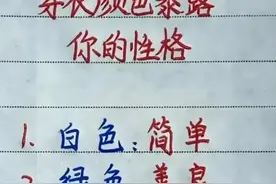 穿衣颜色暴露
你的性格
1. 白色:简单
2. 绿色 善良